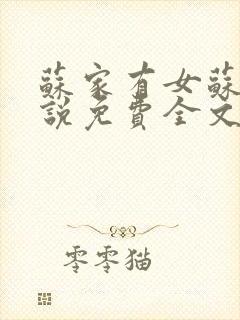 蘇家有女蘇
說免費全文
零零猫